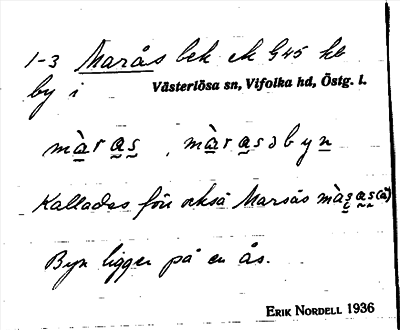 1-3 Marås bek ek G45 kb
by i Västerlösa sn, Vifolka hd, Östg. l.
màras, màrasəbyn
Kallades förr också Marsås màsas(å)
Byn ligger på en ås.
ERIK NORDELL 1936